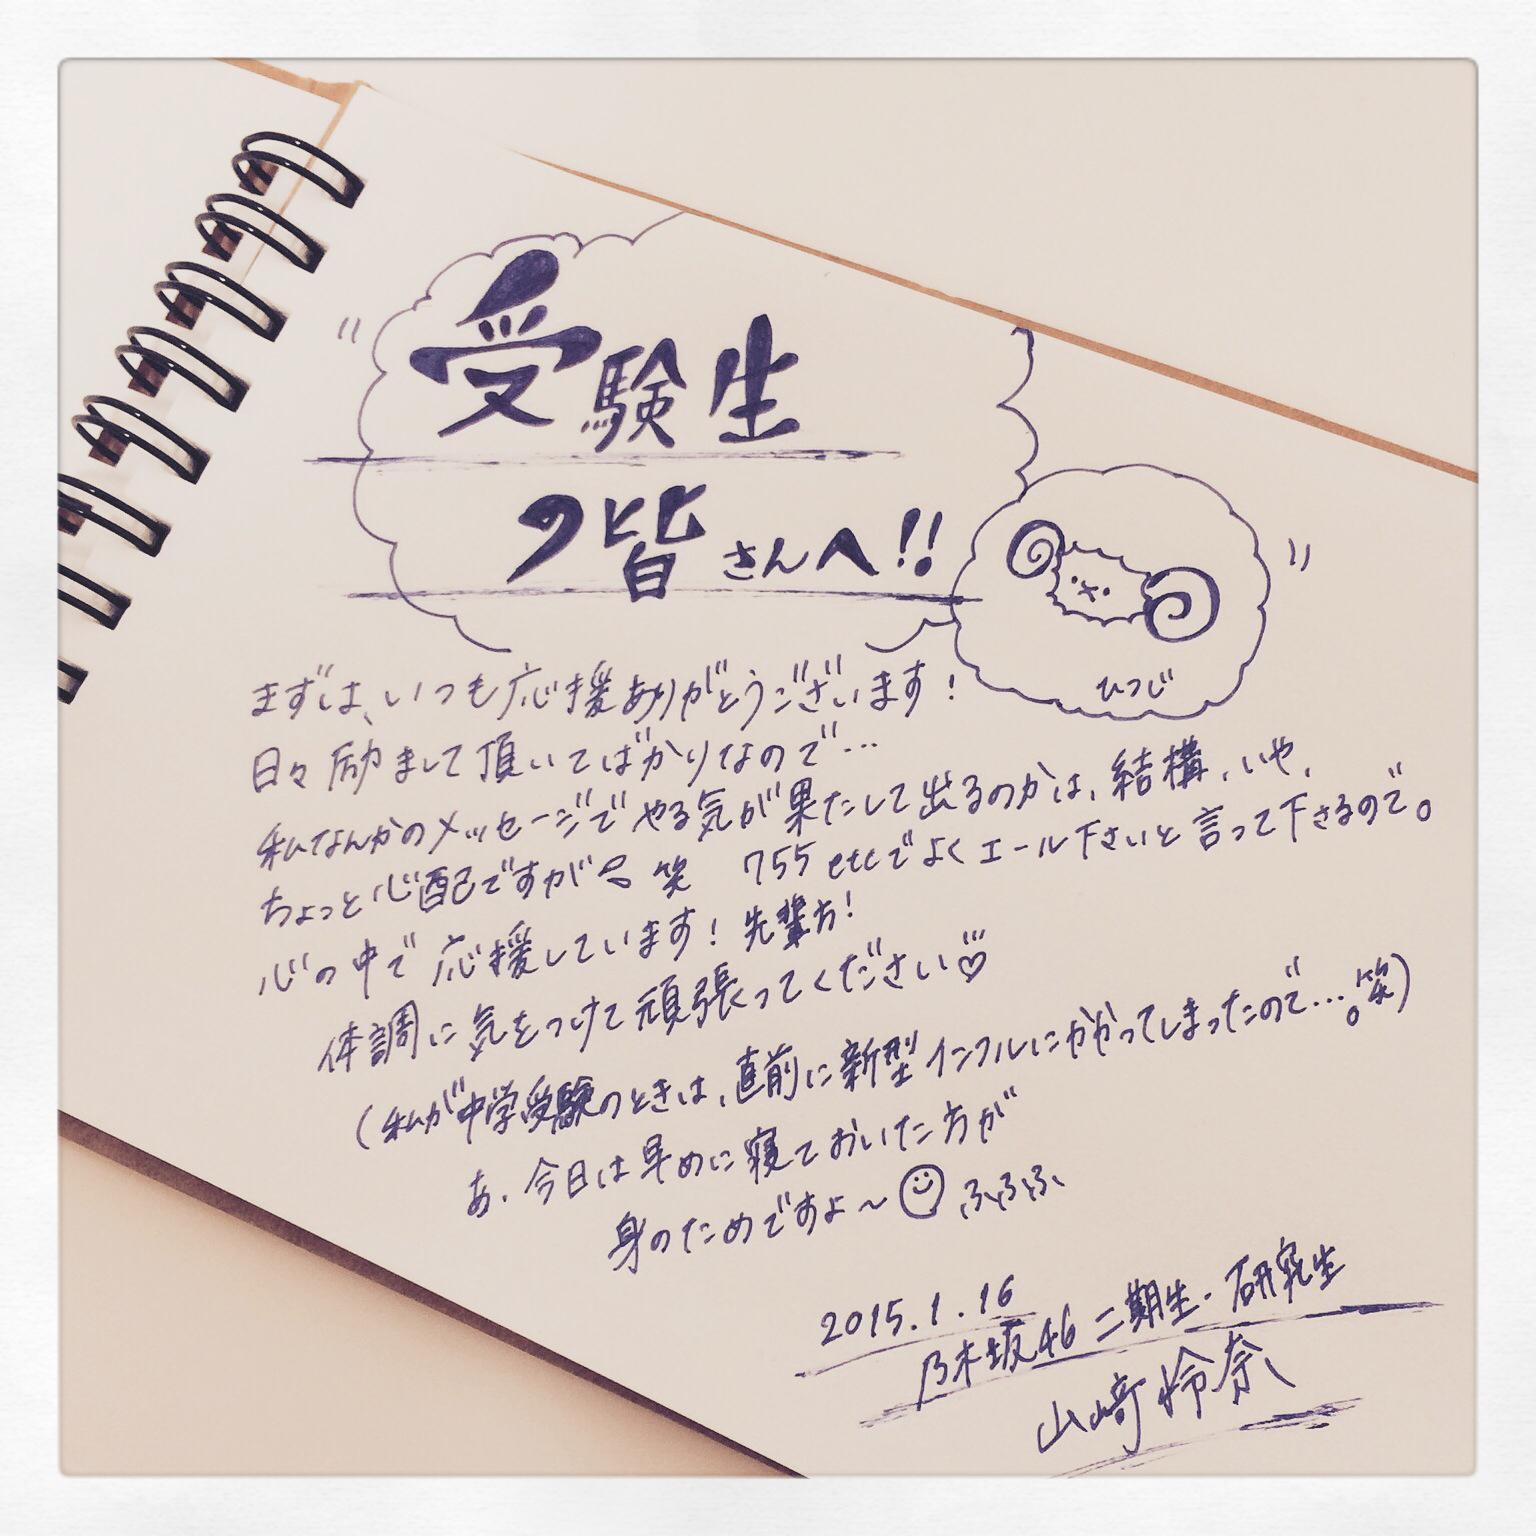 受験生
の皆さんへ!!
ひつじ
まずは、いつも応援ありがとうございます!
日々励まして頂いてばかりなので…
私なんかのメッセージでやる気が果たして出るのかは、結構、いや、
ちょっと心配ですが 笑 755 etcでよくエール下さいと言って下さるので。
心の中で応援しています! 先輩方!
体調に気をつけて頑張ってください♡
(私が中学受験のときは、直前に新型インフルにかかってしまったので…。笑)
あ、今日は早めに寝ておいた方が
身のためですよ〜☺ ふふふ
2015.1.16
乃木坂46 二期生・研究生
山﨑怜奈